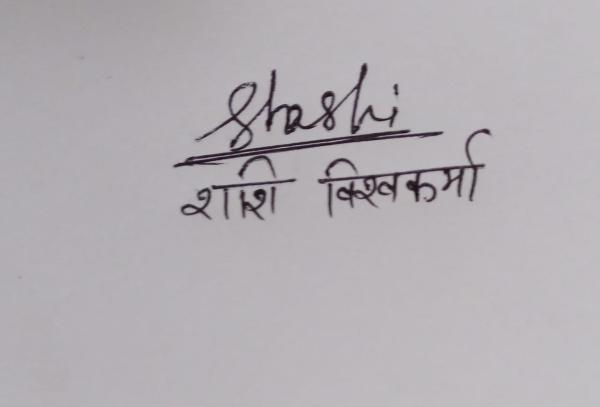 Shashi
शशि विश्वकर्मा